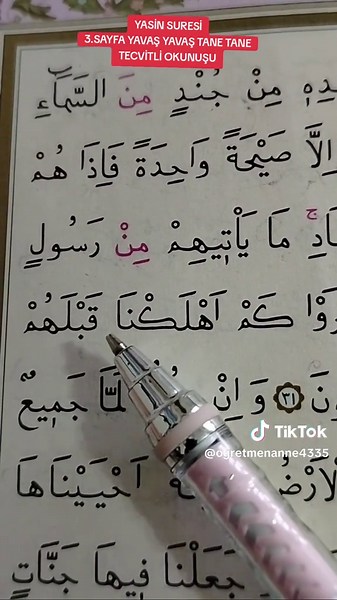 YASİN SURESİ
3.SAYFA YAVAŞ YAVAŞ TANE TANE
TECVİTLİ OKUNUŞU
مِنْ جُنْدٍ مِنَ السَّمَٓاءِ
اِلَّا صَيْحَةً وَاحِدَةً فَاِذَا هُمْ
مَا يَأْت۪يهِمْ مِنْ رَسُولٍ
كَمْ اَهْلَكْنَا قَبْلَهُمْ
٣١ وَاِنْ جَم۪يعٌ
اَحْيَيْنَاهَا
جَعَلْنَا ف۪يهَا جَنَّاتٍ
TikTok
@ogretmenanne4335